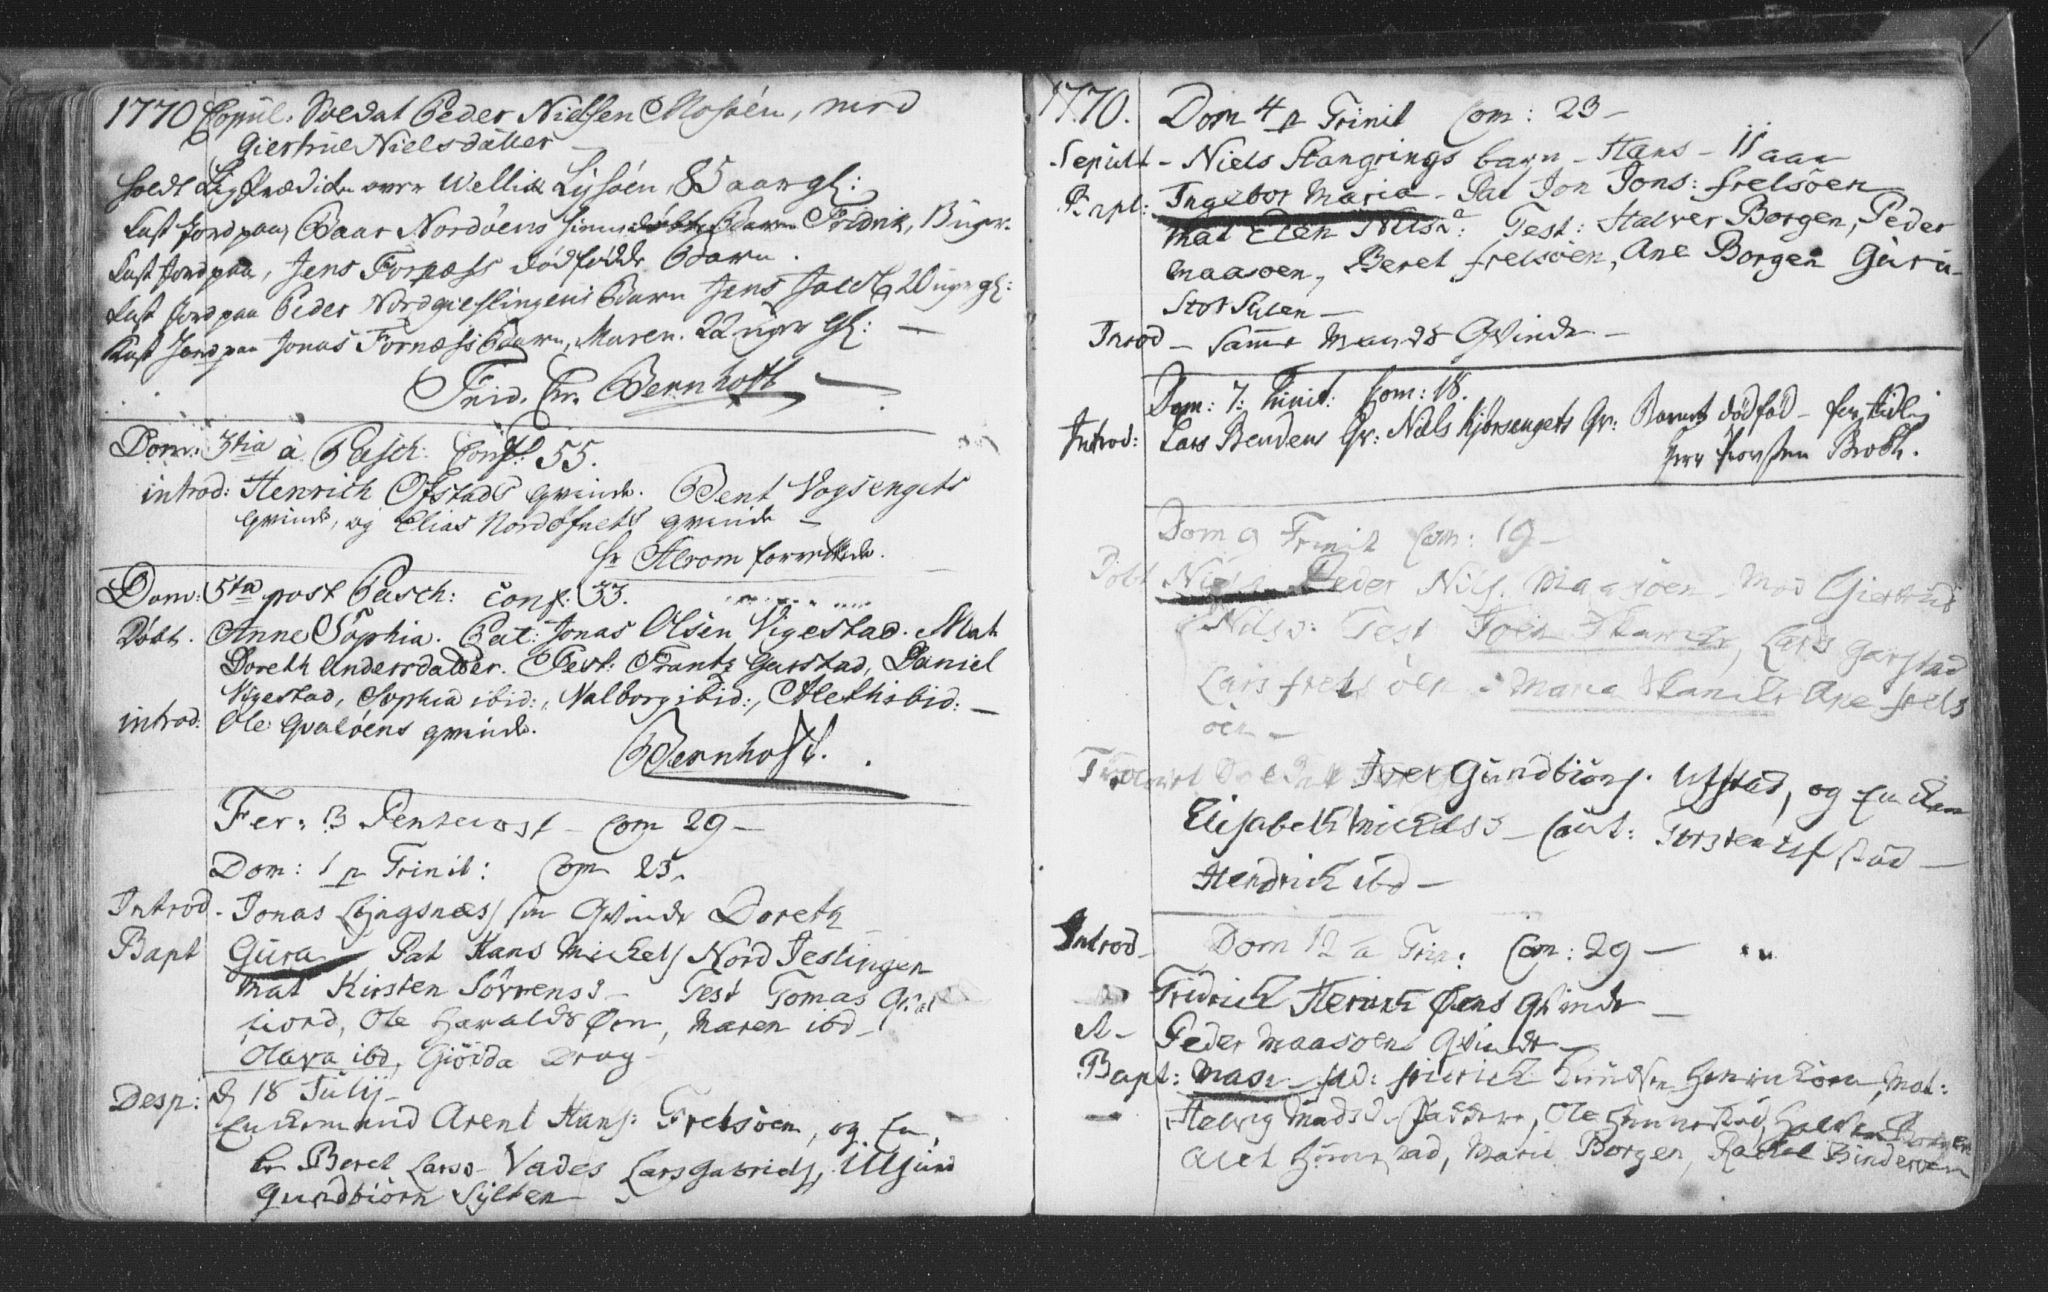 1770 Copul: Soldat Peder Nielsen Mosöen, med
Giertrue Nielsdatter
holdt Liigprædiken over Wellik Lysöen, 85 aar gl:
Kast Jord paa, Baar Nordöens Barn Fridrik, 13 uger.
Kast Jord paa, Jens Fornæss dödfödde Barn.
Kast Jord paa Peder Nordgieslingens Barn Jens Jacob, 20 uger gl:
Kast Jord paa Jonas Fornæss Barn, Maren. 22 uger gl: —
Frid. Chr. Bernhoft
Dom: 3tia a Pasch: Conf: 55.
introd: Henrich Ofstads qvinde. Bent Vogsengets
qvinde, og Elias Nordöfnets qvinde —
hr Alrom forrettede.
Dom: 5ta post Pasch: Conf: 33.
Döbt. Anne Sophia. Pat: Jonas Olsen Vigestad. Mat
Doreth Andersdatter. Test: Frantz Garstad, Daniel
Vigestad, Sophia ibid:, Valborg ibid:, Aleth ibid: —
introd: Ole Qvalöens qvinde.
Bernhoft.
Fer: 3 Pentecost — Com 29 —
Dom: 1 p Trinit: Com 25.
Introd. Jonas Lyngsnæs sin Qvinde Doreth
Bapt Gura Pat Hans Michels Nord Jeslingen
Mat Kirsten Sörrensd — Test Tomas
fiord, Ole Haralds Öen, Maren ibd —
Olava ibd, Giörda Drag —
Desp: d 18 Julij —
Enkemand Arent Hans: Frelsöen, og En
ke Beret Larsd Vades Lars Gabriels, Ulsund
Gundbiörn Sylten —
1770. Dom 4 p Trinit Com: 23 —
Sepult — Niels Skangrings barn — Hans — 11 aar
Bapt: Ingebor Maria — Pat Jon Jons: Frelsöen
Mat Elen Nilsd: Test: Halver Borgen, Peder
Maasöen, Beret Frelsöen, Ane Borgen Guru
Storsylen —
Introd — Samme Mands Qvinde —
Dom: 7: Trinit: Com: 18.
Introd: Lars Bendens Qv: Niels Kjörsengets Qv: Barnet dödföd — for tidlig
Herr Brobh.
Dom 9 Trinit Com: 19 —
Döbt Peder Nils. Maasöen — Mod Giertrud
Nilsd: Test Lars Garstad
Lars Frelsöen: Maria Ane Frels
öen —
Iver Gundbiöns. Ufstad, og Enken
Elisabeth Michelsd — Caut: Torsten Ufstad —
Hendrich ibd —
Introd — Dom 12 a Trin: Com: 29 —
Fridrich Henrich Öens Qvinde —
Peder Maasöens Qvinde —
Bapt: Masi — fad: Friderich Mat:
Helvig Madsd — Faddere, Ole
Alet Maria Borgen, Rachel